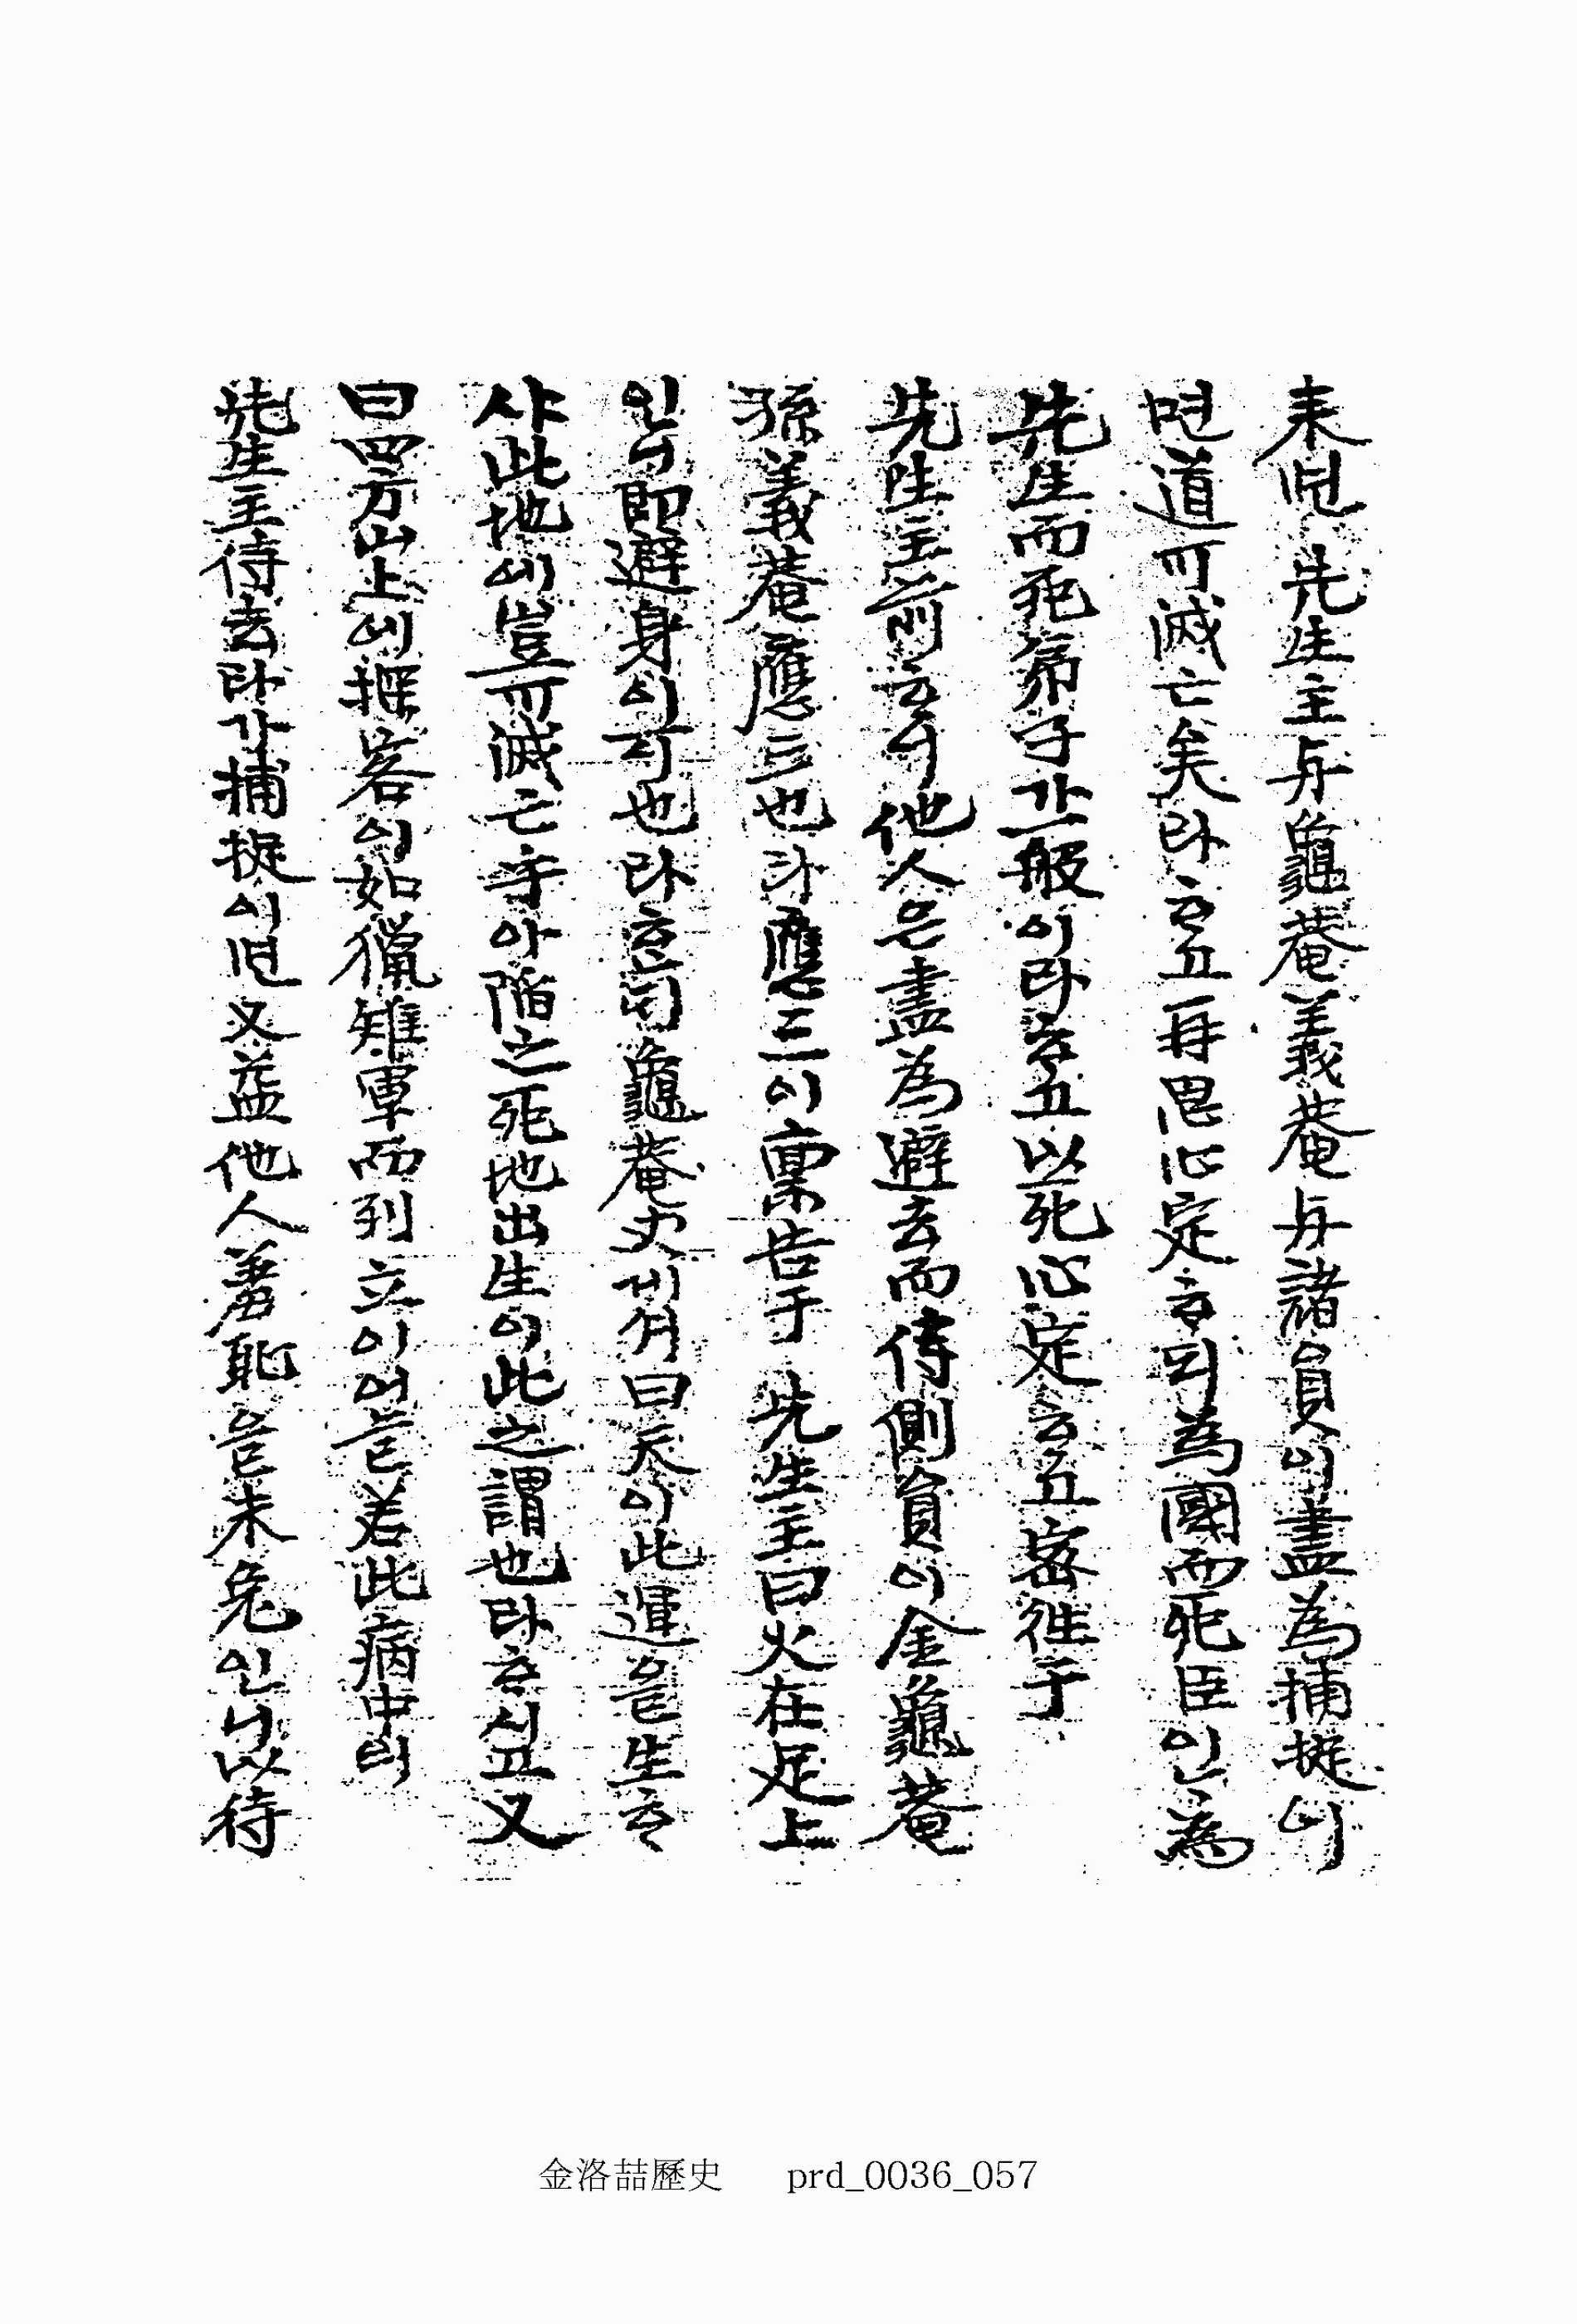 来면 先生主与龜菴義菴与諸員이盡為捕捉이
면道可滅亡矣라ᄒᆞ고再思心定ᄒᆞ되為國而死臣인為
先生而死弟子가一般이라ᄒᆞ고以死心定ᄒᆞ고密往于
先生主前ᄒᆞ니他人은盡為避去而侍側員이金龜菴
孫義菴應三也라應三이稟告于 先生主曰火在足上
인니即避身이可也라ᄒᆞ니龜菴丈게셔曰天이此運을生ᄒᆞ
샤此地에豈可滅亡乎아陷之死地出生이此之謂也라ᄒᆞ시고又
曰四方山上에捕客이如獵雉軍而列立이어늘若此病中의
先生主侍去라가捕捉이면又益他人羞恥을未免인니以待
金洛喆歷史 prd_0036_057